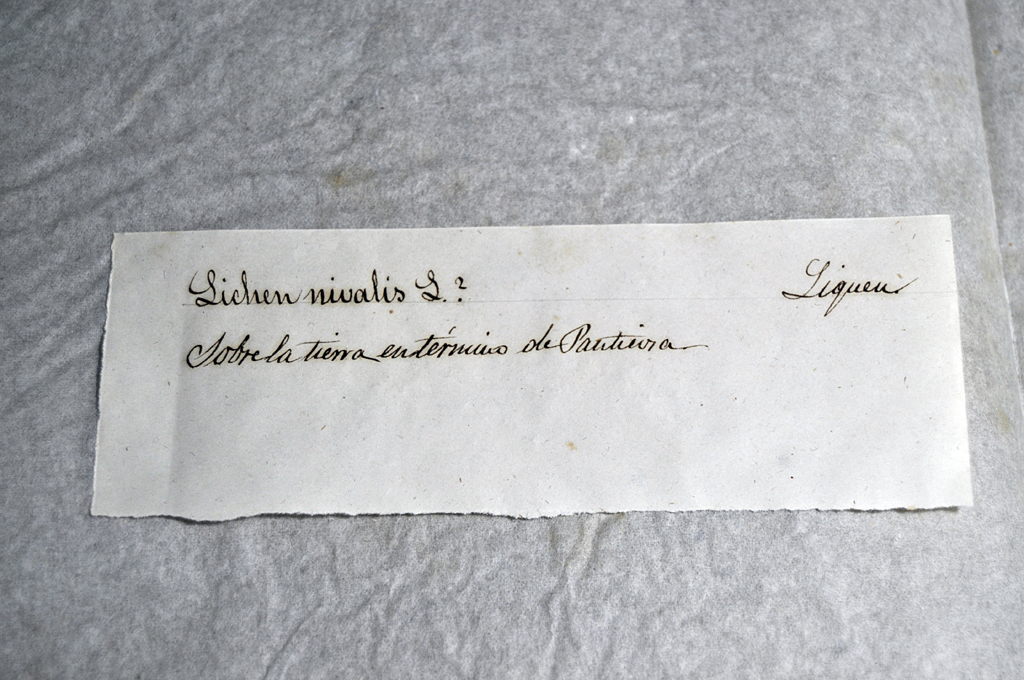 Lichen nivalis L.? Liquen
Sobre la tierra en término de